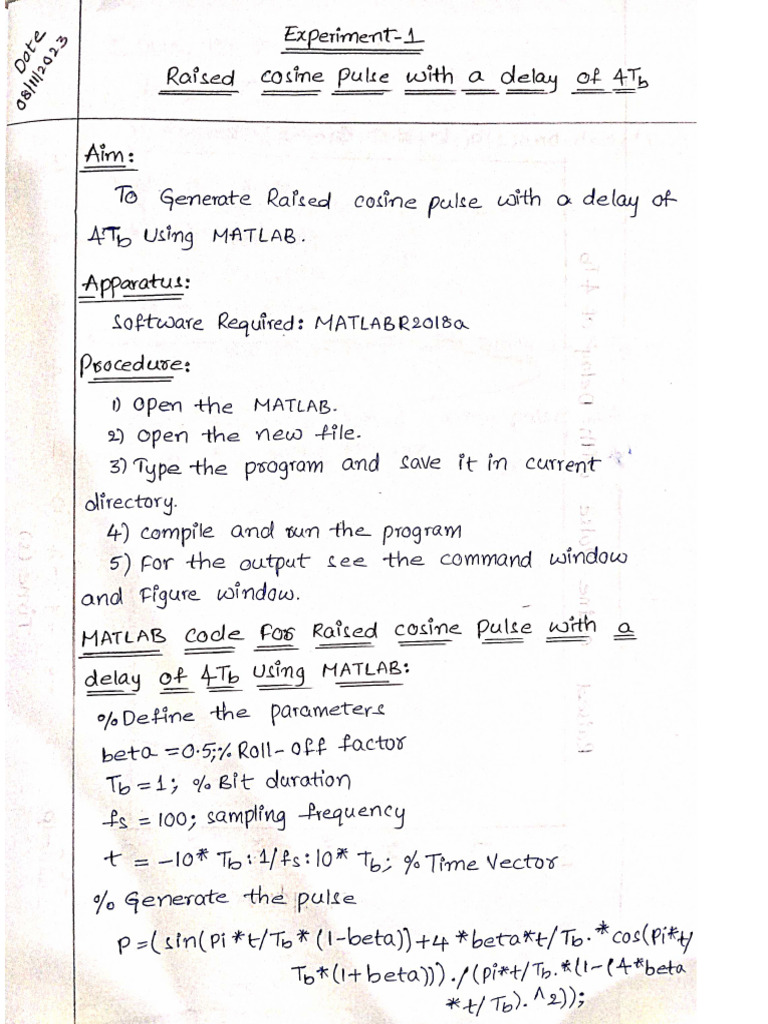 Date
08/11/2023
Experiment-1
Raised cosine pulse with a delay of 4Tb
Aim:
To Generate Raised cosine pulse with a delay of
4Tb Using MATLAB.
Apparatus:
Software Required: MATLABR2018a
Procedure:
1) Open the MATLAB.
2) Open the new file.
3) Type the program and save it in current
directory.
4) compile and run the program
5) For the output see the command window
and Figure window.
MATLAB code For Raised cosine Pulse with a
delay of 4Tb Using MATLAB:
%Define the parameters
beta =0.5;% Roll-off factor
Tb=1; % Bit duration
fs = 100; sampling frequency
t = -10* Tb:1/fs:10* Tb; % Time Vector
% Generate the pulse
P=(sin(Pi*t/Tb*(1-beta))+4*beta*t/Tb.*cos(Pi*t/
Tb*(1+beta)))./(Pi*t/Tb.*(1-(4*beta
*t/Tb).^2));